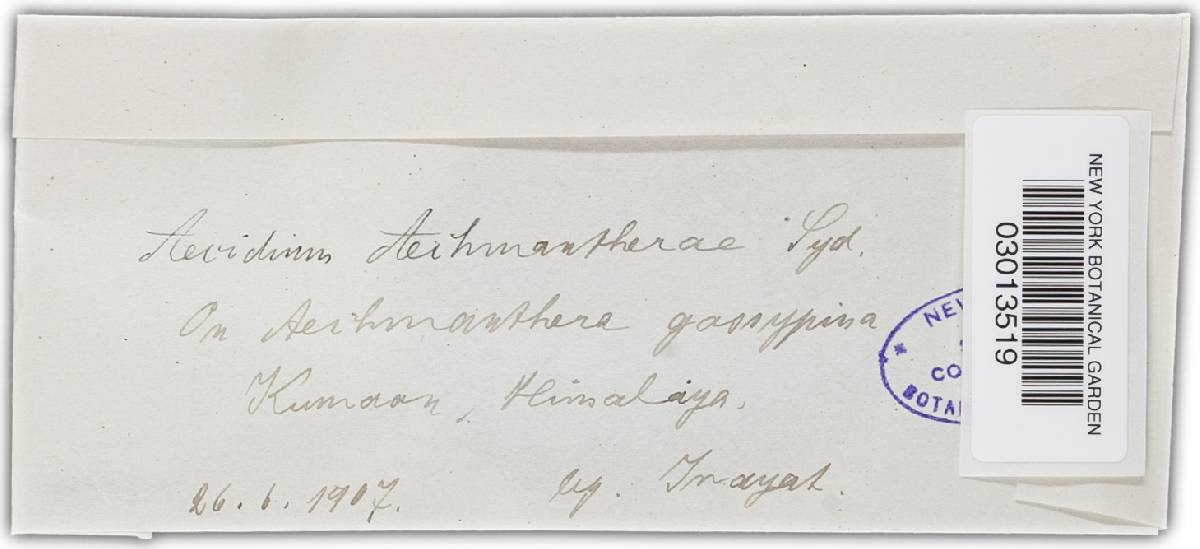 Aecidium Aechmantherae Syd.
On Aechmanthera gossypina
Kumaon, Himalaya.
26. 6. 1907. leg. Inayat.
NEW YORK BOTANICAL GARDEN
03013519
NEW
CO
BOTA